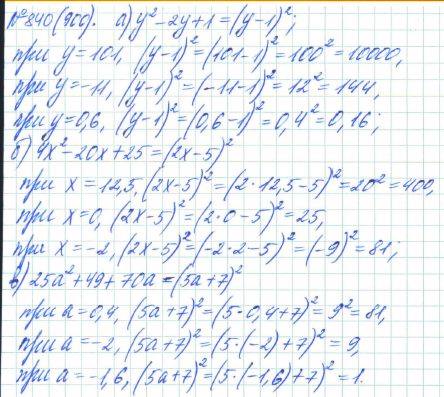 №840(900). а) y²-2y+1=(y-1)²;
при y=101, (y-1)²=(101-1)²=100²=10000,
при y=-11, (y-1)²=(-11-1)²=12²=144,
при y=0,6, (y-1)²=(0,6-1)²=0,4²=0,16;
б) 4x²-20x+25=(2x-5)²
при x=12,5, (2x-5)²=(2·12,5-5)²=20²=400,
при x=0, (2x-5)²=(2·0-5)²=25,
при x=-2, (2x-5)²=(-2·2-5)²=(-9)²=81;
в) 25a²+49+70a=(5a+7)²
при a=0,4, (5a+7)²=(5·0,4+7)²=9²=81,
при a=-2, (5a+7)²=(5·(-2)+7)²=9,
при a=-1,6, (5a+7)²=(5·(-1,6)+7)²=1.